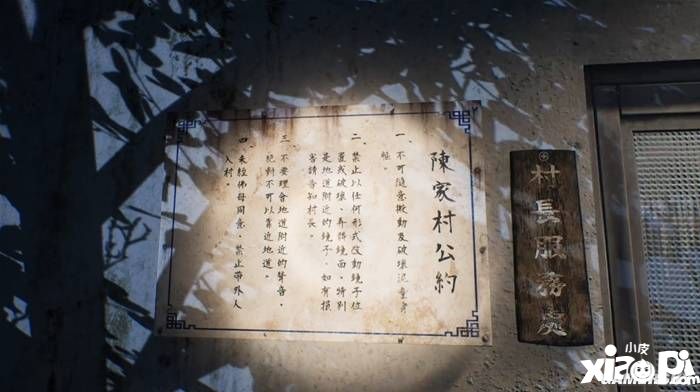 陳家村公約
一、不可隨意搬動及破壞泥童身
二、禁止以任何形式改動鏡子位
置或破壞、弄髒鏡面,特別
是地道附近的鏡子,如有損
害請告知村長。
三、不要理會地道附近的聲音,
絕對不可以靠近地道。
四、未經佛母同意,禁止帶外人
入村。
村長服務處
小皮
xiaopi